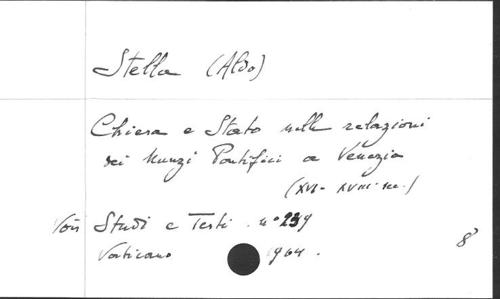 Stella (Aldo)
Chiesa e Stato nelle relazioni
dei Nunzi Pontifici a Venezia
(XVI - XVIII sec.)
Voir Studi e Testi . n° 239
Vaticano 1964 .
8°